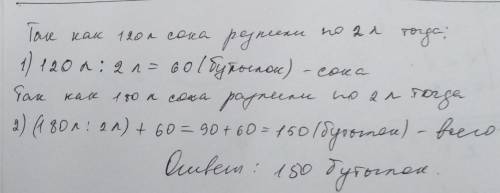 Так как 120 л сока разлили по 2 л тогда:
1) 120 л : 2 л = 60 (бутылок) - сока
Так как 180 л сока разлили по 2 л тогда
2) (180 л : 2 л) + 60 = 90 + 60 = 150 (бутылок) - всего
Ответ: 150 бутылок.